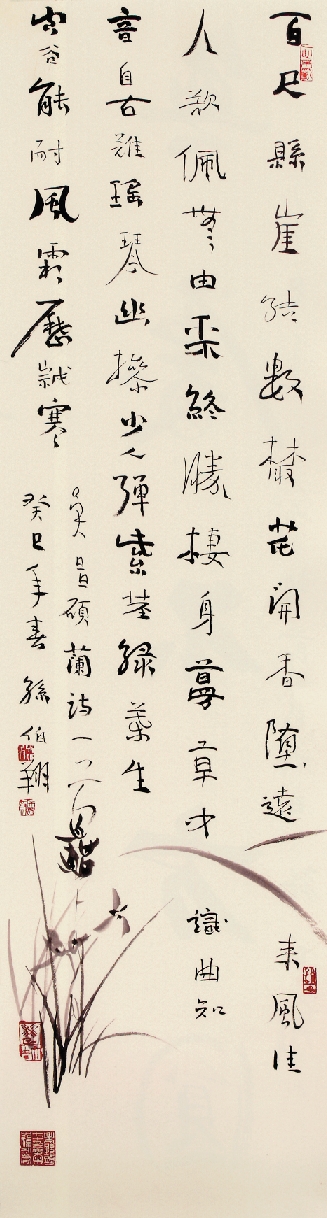 百尺縣崖結數叢花開香墮遠來風佳
人欲佩無由采終勝棲身蔓草中識曲知
音自古難瑤琴幽操少人彈紫莖綠葉生
空谷能耐風霜歷歲寒
吳昌碩蘭詩一二首
癸巳年春孫伯翔